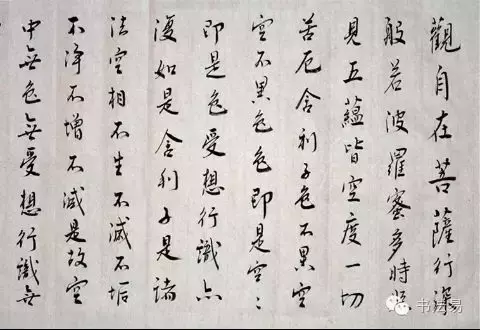 觀自在菩薩行深
般若波羅蜜多時照
見五蘊皆空度一切
苦厄舍利子色不異空
空不異色色即是空空
即是色受想行識亦
復如是舍利子是諸
法空相不生不滅不垢
不淨不增不減是故空
中無色無受想行識無
书法易